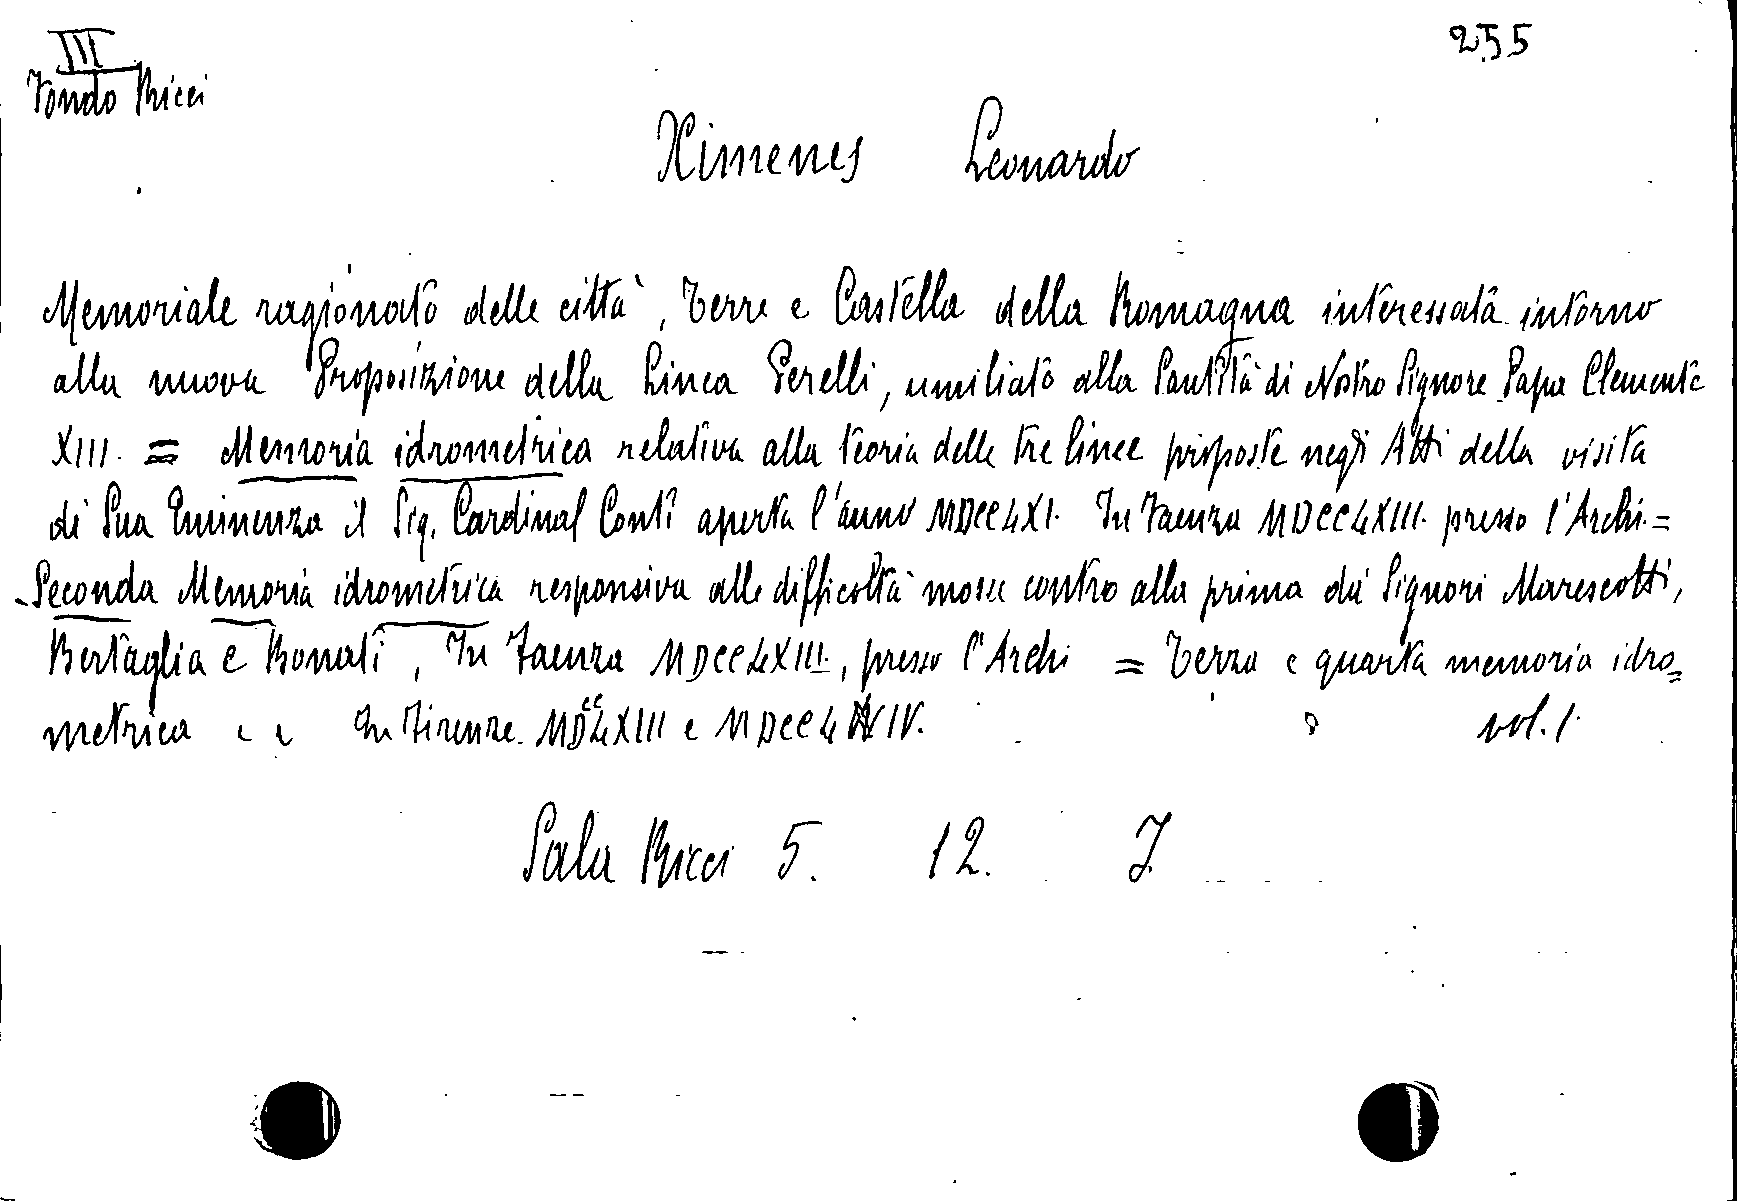 III 255
Fondo Ricci
Ximenes Leonardo
Memoriale ragionato delle città, Terre e Castella della Romagna interessata intorno
alla nuova Proposizione della Linea Perelli, umiliato alla Santità di Nostro Signore Papa Clemente
XIII. = Memoria idrometrica relativa alla teoria delle tre linee proposte negli Atti della visita
di Sua Eminenza il Sig. Cardinal Conti aperta l'anno MDCCLXI. In Faenza MDCCLXIII. presso l'Archi. =
Seconda Memoria idrometrica responsiva alle difficoltà mosse contro alla prima da' Signori Marescotti,
Bertaglia e Bonati, In Faenza MDCCLXIII, presso l'Archi = Terza e quarta memoria idro=
metrica In Firenze. MDCCLXIII e MDCCLXIV. vol. 1.
Sala Ricci 5. 12. 7.